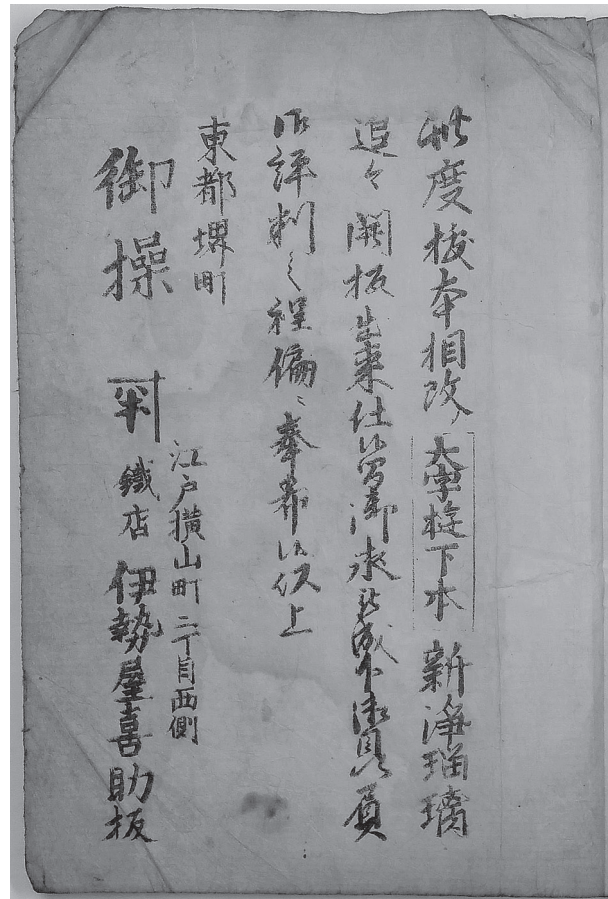 此度抜本相改メ大字床下本新浄瑠璃
追々開板出来仕候間御求被成下御贔屓
御評判之程偏ニ奉希候以上
東都堺町
御操
江戸横山町二丁目西側
判 鐵店 伊勢屋喜助板